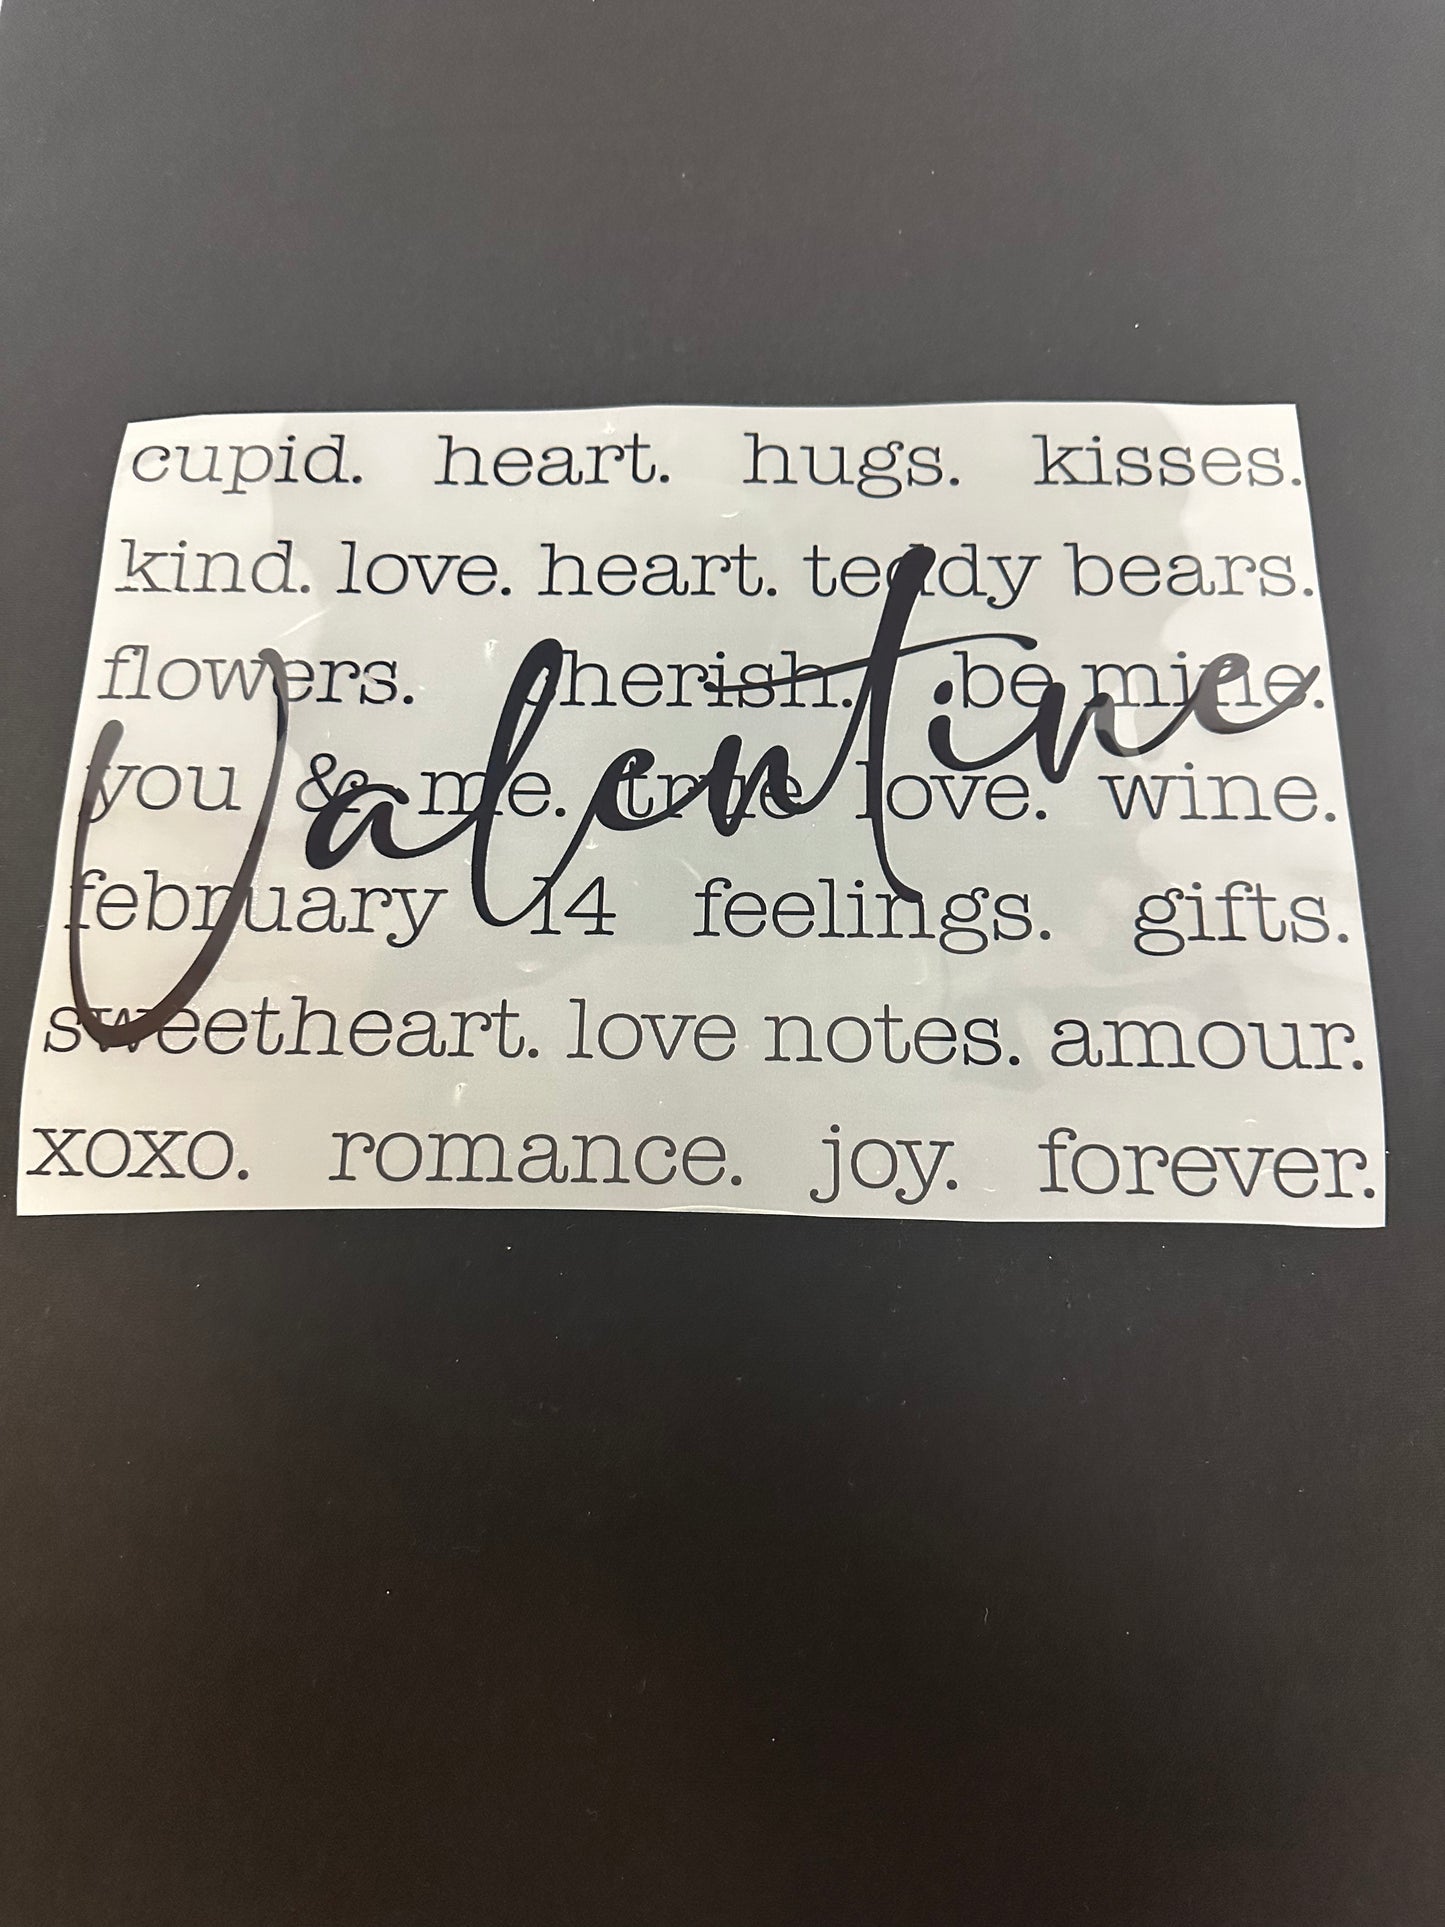 cupid. heart. hugs. kisses.
kind. love. heart. teddy bears.
flowers. cherish. be mine.
you & me. true love. wine.
february 14 feelings. gifts.
sweetheart. love notes. amour.
xoxo. romance. joy. forever.
Valentine